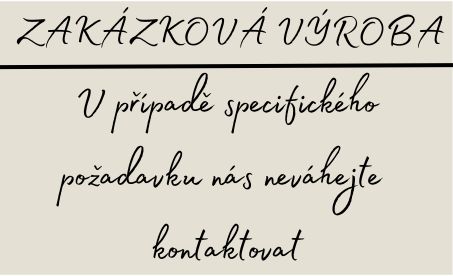 ZAKÁZKOVÁ VÝROBA
V případě specifického
požadavku nás neváhejte
kontaktovat